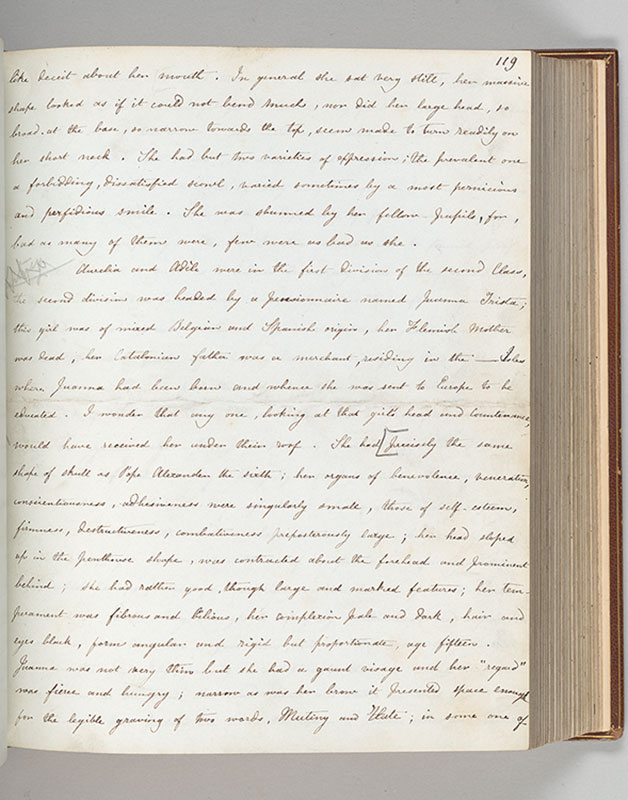 119
like deceit about her mouth. In general, she sat very still, her massive
shape looked as if it could not bend much, nor did her large head, so
broad at the base, so narrow towards the top, seem made to turn readily on
her short neck. She had but two varieties of expression; the prevalent one
a forbidding, dissatisfied scowl, varied sometimes by a most pernicious
and perfidious smile. She was shunned by her fellow-pupils, for,
bad as many of them were, few were as bad as she.
Aurelia and Adèle were in the first division of the second Class,
the second division was headed by a pensionnaire named Juanna Trista;
this girl was of mixed Belgian and Spanish origin, her Flemish Mother
was dead, her Catalonian father was a merchant, residing in the — Isles
where Juanna had been born and whence she was sent to Europe to be
educated. I wonder that any one, looking at that girl's head and countenance,
would have received her under their roof. She had [precisely the same
shape of skull as Pope Alexander the sixth; her organs of benevolence, veneration,
conscientiousness, adhesiveness were singularly small, those of self-esteem,
firmness, destructiveness, combativeness preposterously large; her head sloped
up in the penthouse shape, was contracted about the forehead and prominent
behind; she had rather good, though large and marked features; her tem-
perament was fibrous and bilious, her complexion pale and dark, hair and
eyes black, form angular and rigid but proportionate, age fifteen.
Juanna was not very thin but she had a gaunt visage and her "regard"
was fierce and hungry; narrow as was her brow it presented space enough
for the legible graving of two words, Mutiny and Hate; in some one of